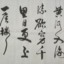 黄河入海
流欲窮千
里目更上
一層樓